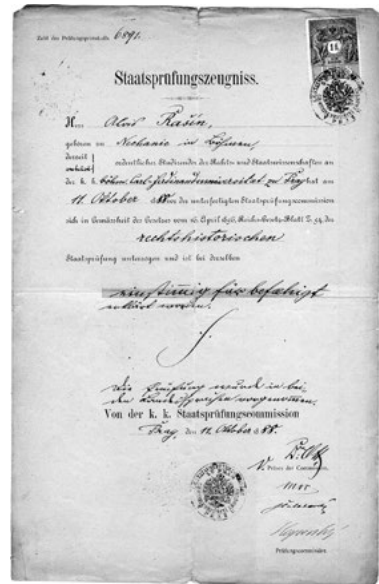 Zahl des Prüfungsprotokolls 6891.
Staatsprüfungszeugniss.
H... Alois Rašín,
geboren zu Nechanic in Böhmen,
derzeit ordentlicher Studierender der Rechts- und Staatswissenschaften an
der k. k. böhm. Carl-Ferdinandsuniversität zu Prag hat am
12. Oktober 188 vor der unterfertigten Staatsprüfungscommission
sich in Gemässheit des Gesetzes vom 16. April 1856, Reichs-Gesetz-Blatt Z. 54 der
rechtshistorischen
Staatsprüfung unterzogen und ist bei derselben
einstimmig für befähigt
erklärt worden.
Die Prüfung wurde in bei-
den Landessprachen vorgenommen.
Von der k. k. Staatsprüfungscommission
Prag, den 12. Oktober 188
Präses der Commission.
Prüfungscommissäre.